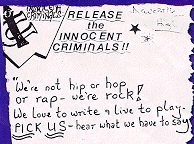 RELEASE
the
INNOCENT
CRIMINALS!!
"We're not hip or hop
or rap - we're rock!
We love to write & live to play-
PICK US - hear what we have to say